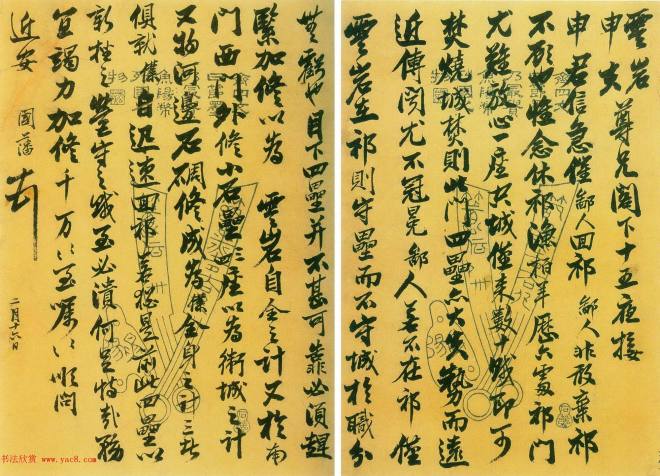 雲岩
申夫 尊兄閣下十五夜接
申君信急催鄙人回祁鄙人非敢棄祁
不顧也惟念休祁漁柏羊歷六處祁門
尤難放心一座空城僅來數十賊即可
焚燒城焚則此門四壘亦大失勢而遠
近傳聞尤不冠冕鄙人若不在祁僅
雲岩在祁則守壘而不守城於職分
無虧也目下四壘并不甚可靠必須趕
緊加修以為 雲岩自全之計又於南
門西門外修小石壘三座以為衛城之計
又於河邊石碉修成為僕全身之計三者
俱就僕自迅速回祁若猶是前此四壘以
新之營守之賊至必潰何足恃哉務
宜竭力加修千萬〻至囑〻順問
近安 國藩
二月十六日
书法欣赏 www.yac8.com